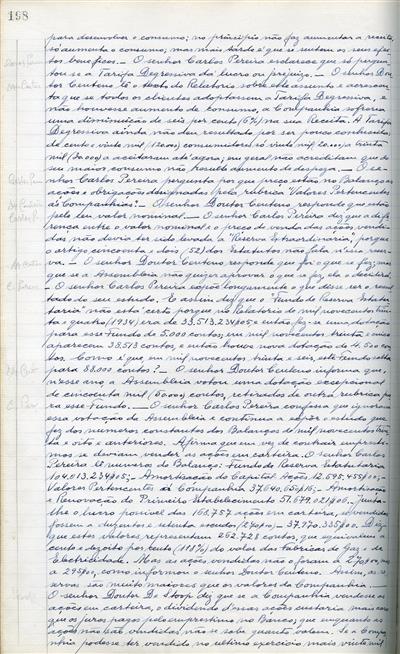 198
para desenvolver o consumo; no princípio não faz aumentar a receita,
só aumenta o consumo; mas mais tarde é que se sentem os seus efei-
tos beneficos. — O senhor Carlos Pereira esclarece que só pergun-
tou se a Tarifa Degressiva dá lucro ou prejuizo. — O senhor Dou-
tor Centeno lê o texto do Relatorio sobre este assunto e acrescen-
ta que se todos os clientes adoptassem a Tarifa Degressiva, e
não houvesse aumento de consumo, a Companhia sofreria
uma diminuição de seis por cento (6%) na sua Receita. A Tarifa
Degressiva ainda não deu resultado por ser pouco conhecida;
de cento e vinte mil (120.000) consumidores só vinte mil (20.000) a trinta
mil (30.000) a aceitaram até agora; em geral não acreditam que do
seu maior consumo não resulte aumento de despeza. — O se-
nhor Carlos Pereira pergunta por que preço estão no Balanço as
acções e obrigações designadas pela rubrica "Valores Pertencentes
á Companhia"? — O senhor Doutor Centeno responde que estão
pelo seu valor nominal. — O senhor Carlos Pereira diz que a dife-
rença entre o valor nominal e o preço de venda das acções vendi-
das não devia ter sido levado a Reserva Extraordinaria, porque
o artigo cincoenta e dois (52) dos Estatutos não fala nessa reser-
va. — O senhor Doutor Centeno responde que foi o que se fez; mas
que se a Assembleia não quizer aprovar o que se fez, ela o declarará.
— O senhor Carlos Pereira expõe longamente o que disse ser o resul-
tado do seu estudo. E assim diz que o "Fundo de Reserva Estatu-
taria" não está certo porque no Relatorio de mil novecentos trin-
ta e quatro (1934) era de 33.513.234$05 e então fez-se uma dotação
para esse Fundo de 5.000 contos; em mil novecentos trinta e cinco
aparecem 38.513 contos, e então houve nova dotação de 4.500 con-
tos. Como é que em mil novecentos trinta e seis, este Fundo salta
para 88.000 contos? — O senhor Doutor Centeno informa que,
nesse ano, a Assembleia votou uma dotação excepcional
de cincoenta mil contos, retirados de outra rubrica pa-
ra esse Fundo. — O senhor Carlos Pereira confessa que ignorava
essa votação da Assembleia e continua a expôr o estudo que
fez dos numeros constantes dos Balanços de mil novecentos trin-
ta e oito e anteriores. Afirma que em vez de contrair emprésti-
mos se deviam vender as acções em carteira. O senhor Carlos
Pereira lê numeros do Balanço: Fundo de Reserva Estatutaria
104.013.234$05; — Amortisação do Capital Acções 12.695.455$00; —
Valores Pertencentes á Companhia — Amortisação
e Renovação do Primeiro Estabelecimento Junta-
lhe o lucro possivel das 168.757 acções em carteira, se vendidas
fossem a duzentos e setenta escudos, Diz
que estes valores representam 262.728 contos, que equivalem a
cento e dezoito por cento (118%) do valor das Fabricas de Gaz e de
Electricidade. Mas as acções vendidas não o foram a
como informou o senhor Doutor Centeno. Assim, as re-
servas são muito maiores que os valores da Companhia. —
O senhor Doutor De Stoop diz que se a Companhia vendesse as
acções em carteira, o dividendo dessas acções custaria mais caro
que os juros pagos pelo emprestimo no Banco; que emquanto as
acções não são vendidas, não se sabe quanto valem. Se a Compa-
nhia podesse ter vendido no ultimo exercicio mais vinte mil